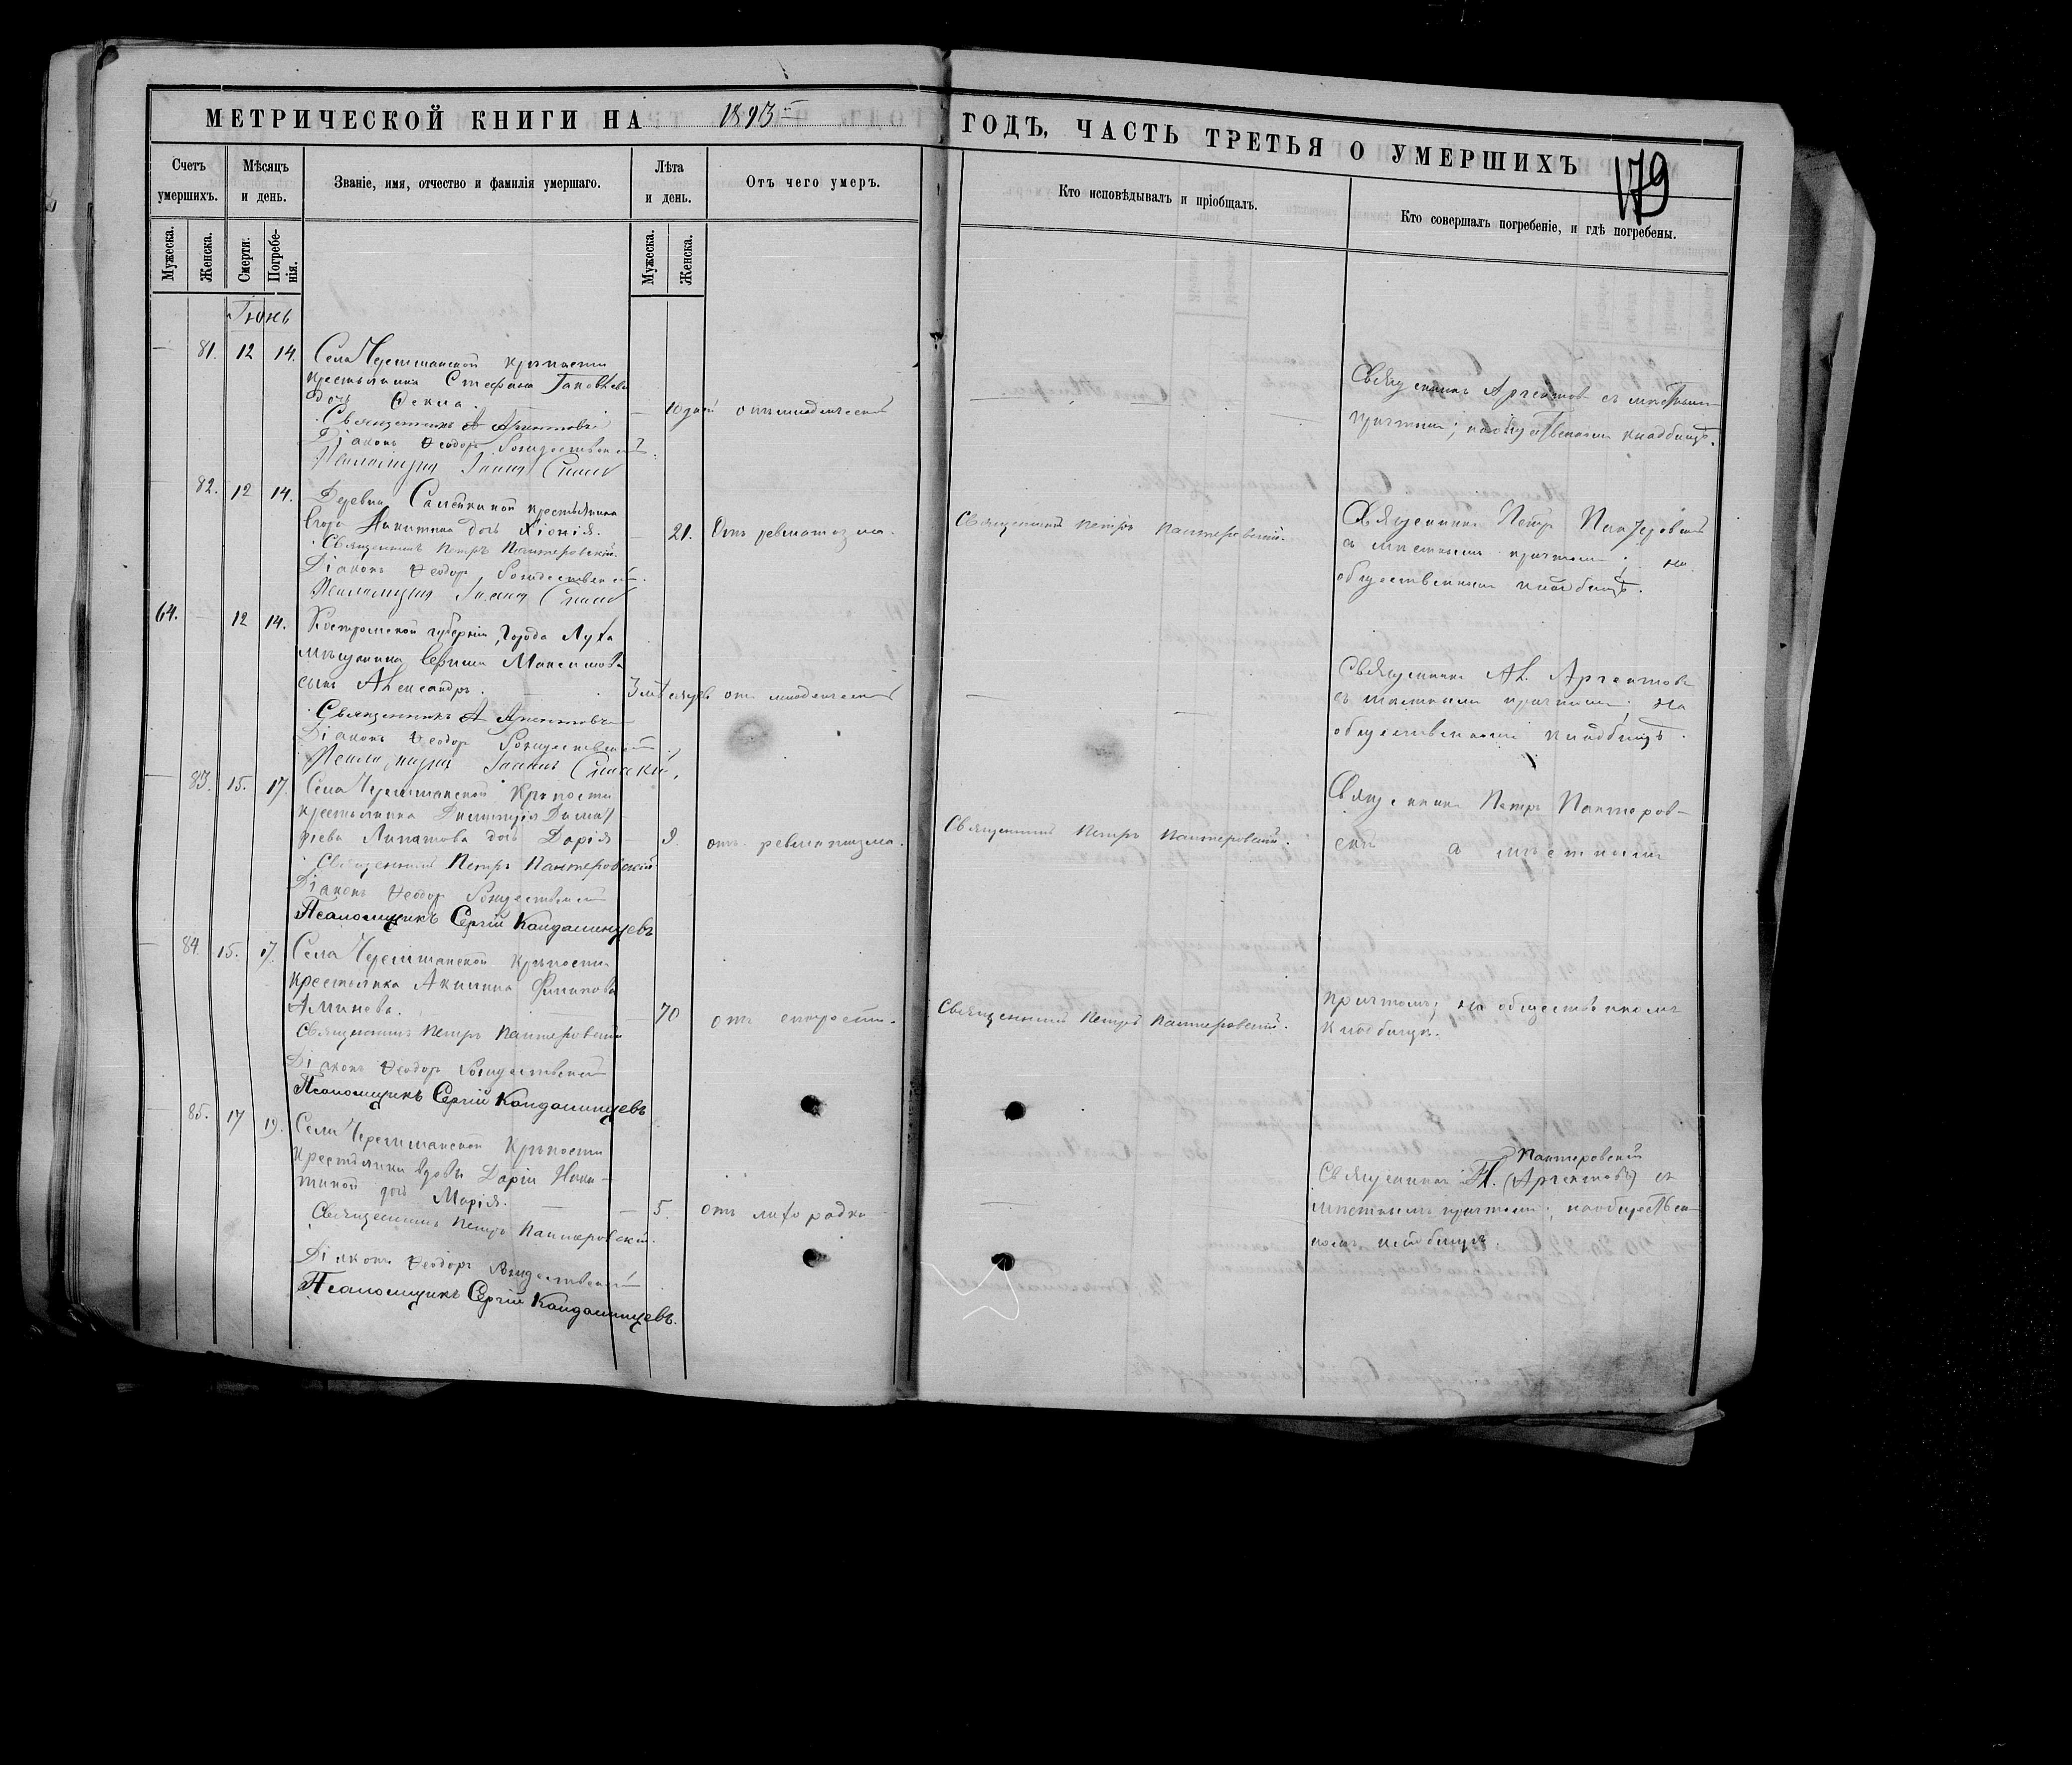 МЕТРИЧЕСКОЙ КНИГИ НА 1893 ГОДЪ, ЧАСТЬ ТРЕТЬЯ О УМЕРШИХЪ
179
Счетъ умершихъ.
Мѣсяцъ и день.
Званіе, имя, отчество и фамилія умершаго.
Лѣта и день.
Отъ чего умеръ.
Кто исповѣдывалъ и пріобщалъ.
Кто совершалъ погребеніе, и гдѣ погребены.
Мужеска.
Женска.
Смерти.
Погребе-
нія.
Мужеска.
Женска.
Іюнь
81. 12 14.
Села Черемшанской крѣпости
крестьянина Стефана Іаковлева
дочь Фекла.
10 дней
отъ младенческой
Священникъ Аргентовъ съ мѣстнымъ
причтомъ; на общественномъ кладбищѣ.
Священникъ А Аргентовъ
Діаконъ Ѳеодоръ Рождественскій
Псаломщикъ Іоаннъ Спасскій
82. 12 14.
Деревни крестьянина
Егора Никитина дочь Хіонія.
21.
Отъ ревматизма.
Священникъ Петръ Пантеровскій.
Священникъ Петръ Пантеровскій
съ мѣстнымъ причтомъ; на
общественномъ кладбищѣ.
Священникъ Петръ Пантеровскій.
Діаконъ Ѳеодоръ Рождественскій.
Псаломщикъ Іоаннъ Спасскій
64. 12 14.
Костромской губерніи, города Луха
мѣщанина Ефима Максимова
сынъ Александръ.
3 мѣсяцевъ
отъ младенческой
Священникъ Ал. Аргентовъ
съ мѣстнымъ причтомъ; на
общественномъ кладбищѣ.
Священникъ А Аргентовъ
Діаконъ Ѳеодоръ Рождественскій
Псаломщикъ Іоаннъ Спасскій,
83. 15. 17.
Села Черемшанской Крѣпости
крестьянина Димитрія
Липатова дочь Дарія
9.
отъ ревматизма.
Священникъ Петръ Пантеровскій.
Священникъ Петръ Пантеров-
скій съ мѣстнымъ
Священникъ Петръ Пантеровскій
Діаконъ Ѳеодоръ Рождественскій
Псаломщикъ Сергій Кандалинцевъ
84. 15. 17.
Села Черемшанской крѣпости
крестьянка Акилина Филипова
70
отъ старости.
Священникъ Петръ Пантеровскій.
причтомъ; на общественномъ
кладбищѣ.
Священникъ Петръ Пантеровскій
Діаконъ Ѳеодоръ Рождественскій
Псаломщикъ Сергій Кандалинцевъ
85. 17 19.
Села Черемшанской Крѣпости
крестьянки вдовы Даріи Ники-
тиной дочь Марія.
5.
отъ лихорадки
Пантеровскій
Священникъ П. (Аргентовъ) съ
мѣстнымъ причтомъ; на обществен-
номъ кладбищѣ.
Священникъ Петръ Пантеровскій.
Діаконъ Ѳеодоръ Рождественскій
Псаломщикъ Сергій Кандалинцевъ.